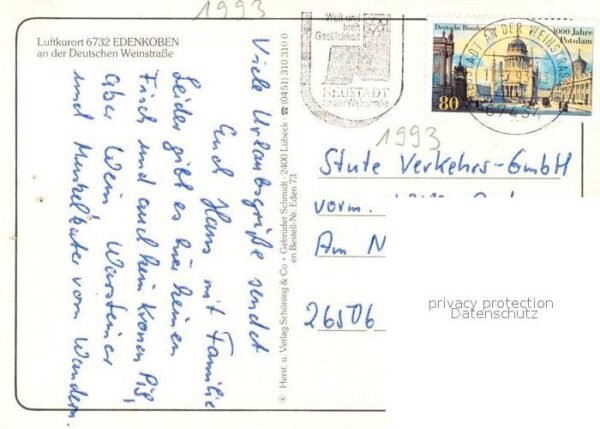 1993
Luftkurort 6732 EDENKOBEN
an der Deutschen Weinstraße
Viele Urlaubsgrüße sendet
Euch Hans mit Familie
Leider gibt es hier keinen
Fisch und auch kein Kronen Pils,
aber Wein, Warsteiner
und Muskelkater vom Wandern.
© Herst. u. Verlag Schöning & Co + Gebrüder Schmidt · 2400 Lübeck · ☎ (0451) 310 310 0
en Bestell-Nr. Eden 73
Wein und
Gastlichkeit
NEUSTADT
an der Weinstraße
Deutsche Bundespost
1000 Jahre
Potsdam
80
STADT AN DER WEINSTRASSE
67434
1993
Stute Verkehrs-GmbH
vorm.
Am N
26506
privacy protection
Datenschutz